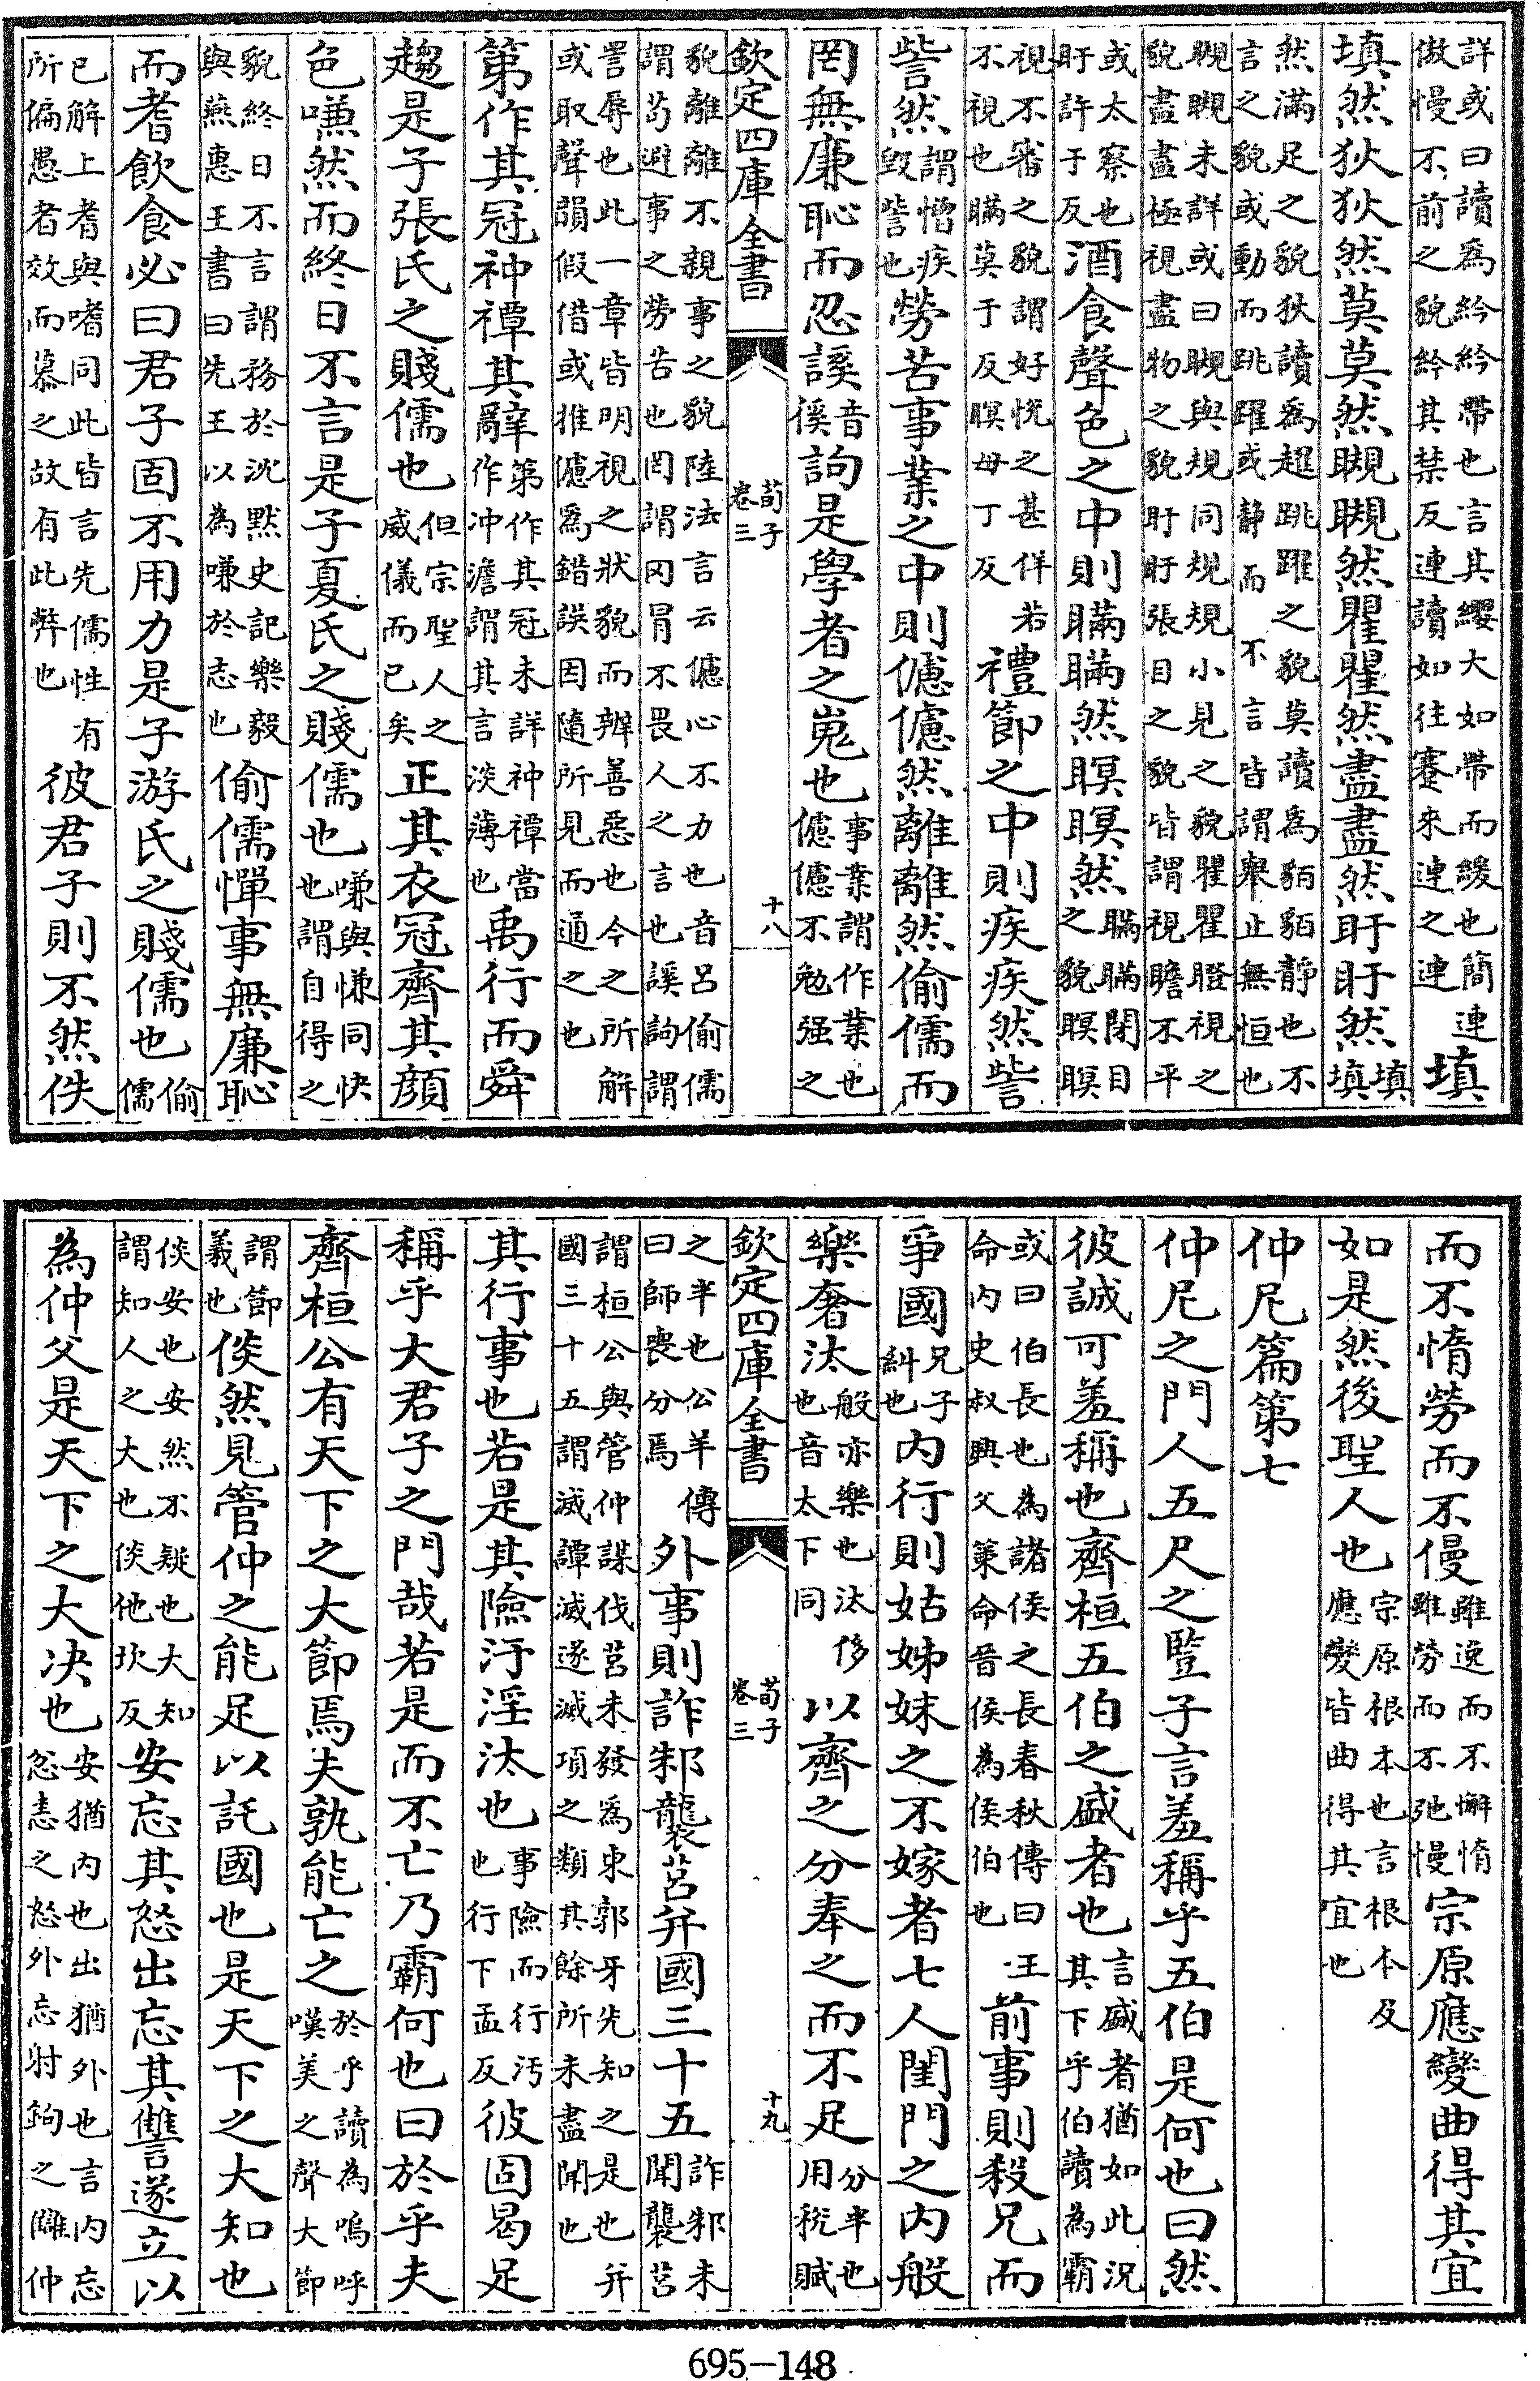 詳或曰讀為紟紟帶也言其纓大如帶而緩也簡連
傲慢不前之貌紟其禁反連讀如往蹇來連之連填
填然狄狄然莫莫然瞡瞡然瞿瞿然盡盡然盱盱然填填
然滿足之貌狄讀為趯跳躍之貌莫讀為貊貊静也不
言之貌或動而跳躍或静而不言皆謂舉止無恒也
瞡瞡未詳或曰瞡與規同規規小見之貌瞿瞿瞪視之
貌盡盡極視盡物之貌盱盱張目之貌皆謂視瞻不平
或太察也
盱許于反酒食聲色之中則瞞瞞然瞑瞑然瞞瞞閉目
之貌瞑瞑
視不審之貌謂好悦之甚佯若
不視也瞞莫于反瞑母丁反禮節之中則疾疾然訾
訾然謂憎疾
毀訾也勞苦事業之中則儢儢然離離然偷儒而
罔無廉恥而忍謑音
傒詢是學者之嵬也事業謂作業也
儢儢不勉强之
欽定四庫全書
荀子
卷三
十八
貌離離不親事之貌陸法言云儢心不力也音吕偷儒
謂苟避事之勞苦也罔謂罔冒不畏人之言也謑詢謂
詈辱也此一章皆明視之狀貌而辨善惡也今之所解
或取聲韻假借或推儢為錯誤因隨所見而通之也
第作其冠衶禫其辭第作其冠未詳衶禫當
作冲澹謂其言淡薄也禹行而舜
趨是子張氏之賤儒也但宗聖人之
威儀而已矣正其衣冠齊其顔
色嗛然而終日不言是子夏氏之賤儒也嗛與慊同快
也謂自得之
貌終日不言謂務於沈黙史記樂毅
與燕惠王書曰先王以為嗛於志也偷儒憚事無廉恥
而耆飲食必曰君子固不用力是子游氏之賤儒也偷
儒
已解上耆與嗜同此皆言先儒性有
所偏愚者效而慕之故有此弊也彼君子則不然佚
而不惰勞而不僈雖逸而不懈惰
雖勞而不弛慢宗原應變曲得其宜
如是然後聖人也宗原根本也言根本及
應變皆曲得其宜也
仲尼篇第七
仲尼之門人五尺之豎子言羞稱乎五伯是何也曰然
彼誠可羞稱也齊桓五伯之盛者也言盛者猶如此況
其下乎伯讀為霸
或曰伯長也為諸侯之長春秋傳曰王
命内史叔興父策命晉侯為侯伯也前事則殺兄而
爭國兄子
糾也内行則姑姊妹之不嫁者七人閨門之内般
樂奢汰般亦樂也汰侈
也音太下同以齊之分奉之而不足分半也
用税賦
欽定四庫全書
荀子
卷三
十九
之半也公羊傳
曰師喪分焉外事則詐邾襲莒并國三十五詐邾未
聞襲莒
謂桓公與管仲謀伐莒未發為東郭牙先知之是也并
國三十五謂滅譚滅遂滅項之類其餘所未盡聞也
其行事也若是其險汙淫汰也事險而行汚
也行下孟反彼固曷足
稱乎大君子之門哉若是而不亡乃霸何也曰於乎夫
齊桓公有天下之大節焉夫孰能亡之於乎讀為嗚呼
嘆美之聲大節
謂節
義也倓然見管仲之能足以託國也是天下之大知也
倓安也安然不疑也大知
謂知人之大也倓他坎反安忘其怒出忘其讐遂立以
為仲父是天下之大决也安猶内也出猶外也言内忘
忿恚之怒外忘射鉤之讎仲
695-148